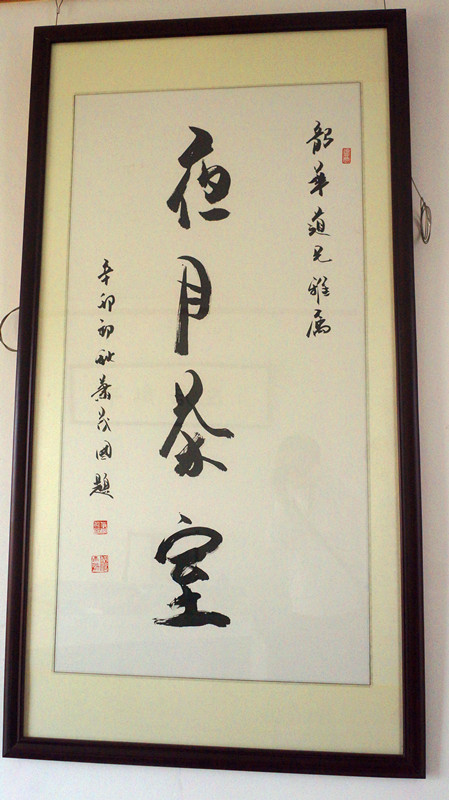 韶華道兄雅屬
夜月茶室
辛卯初秋蕭茂國題